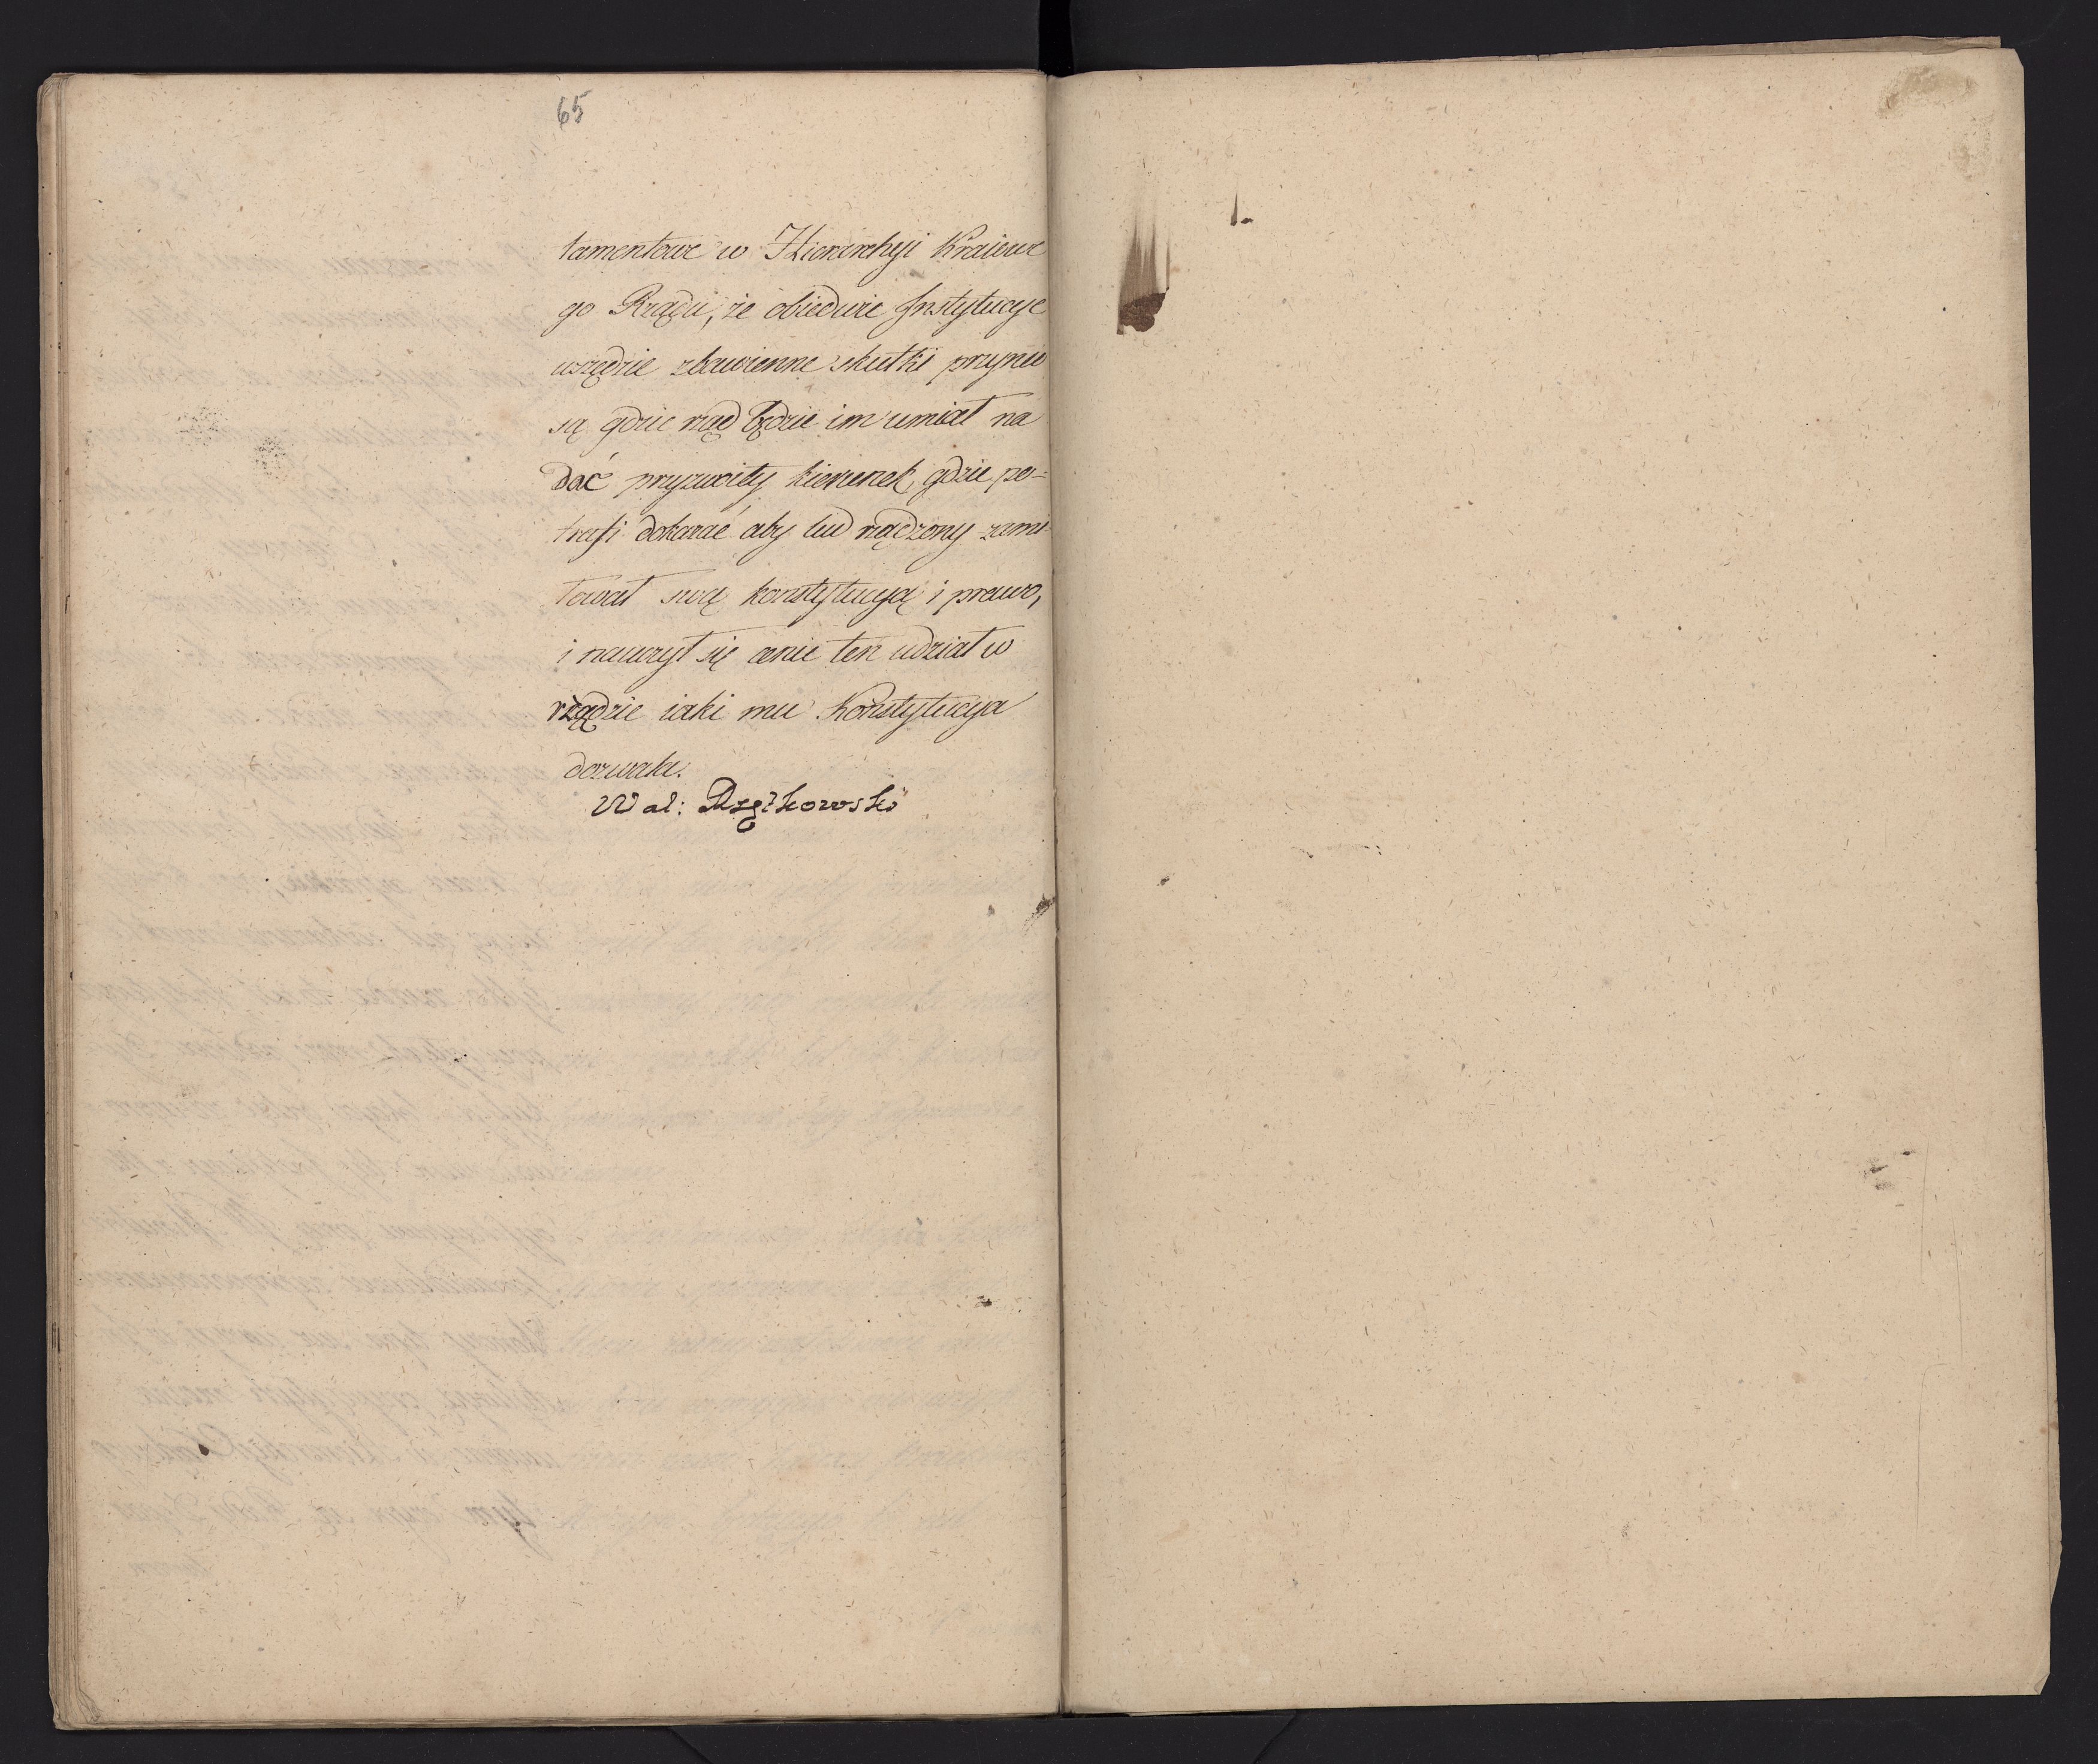 65
tamentowe w Hierarchyi Kraiowe
go Rządu, że obiedwie Instytucye
wszędzie zbawienne skutki przynio
są gdzie rząd będzie im umiał na
dać przyzwoity kierunek, gdzie po=
trafi dokazać aby lud rządzony zami-
łował swą konstytucyą i prawo,
i nauczył się cenić ten udział w
rządzie iaki mu Konstytucya
dozwala.
Wal: Rzątkowski